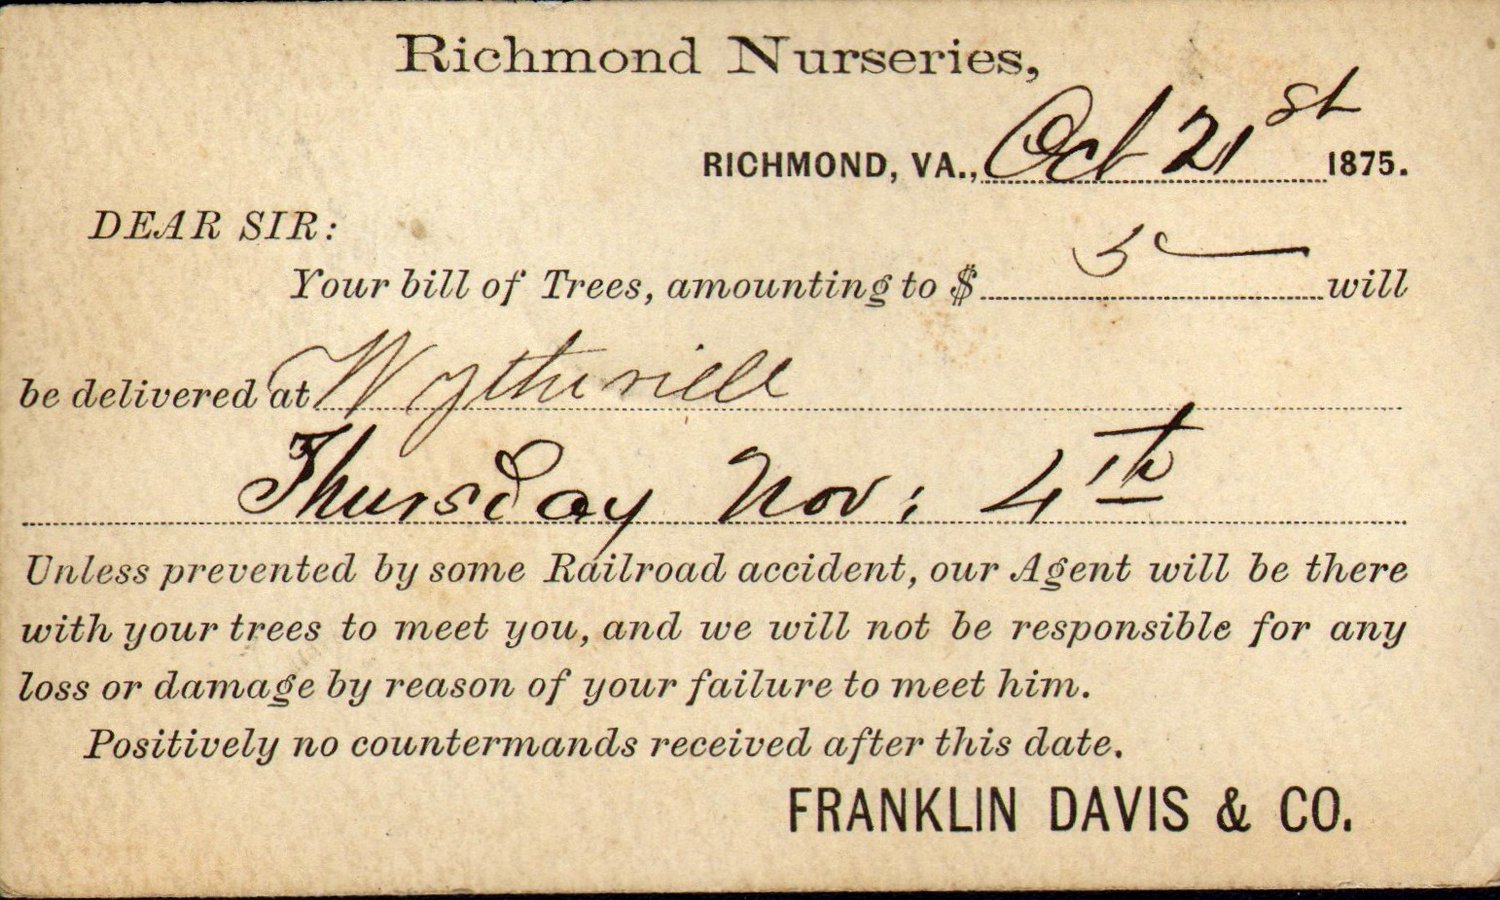 Richmond Nurseries,
RICHMOND, VA., Oct 21st 1875.
DEAR SIR:
Your bill of Trees, amounting to $ will
be delivered at Wytheville
Thursday Nov: 4th
Unless prevented by some Railroad accident, our Agent will be there
with your trees to meet you, and we will not be responsible for any
loss or damage by reason of your failure to meet him.
Positively no countermands received after this date.
FRANKLIN DAVIS & CO.